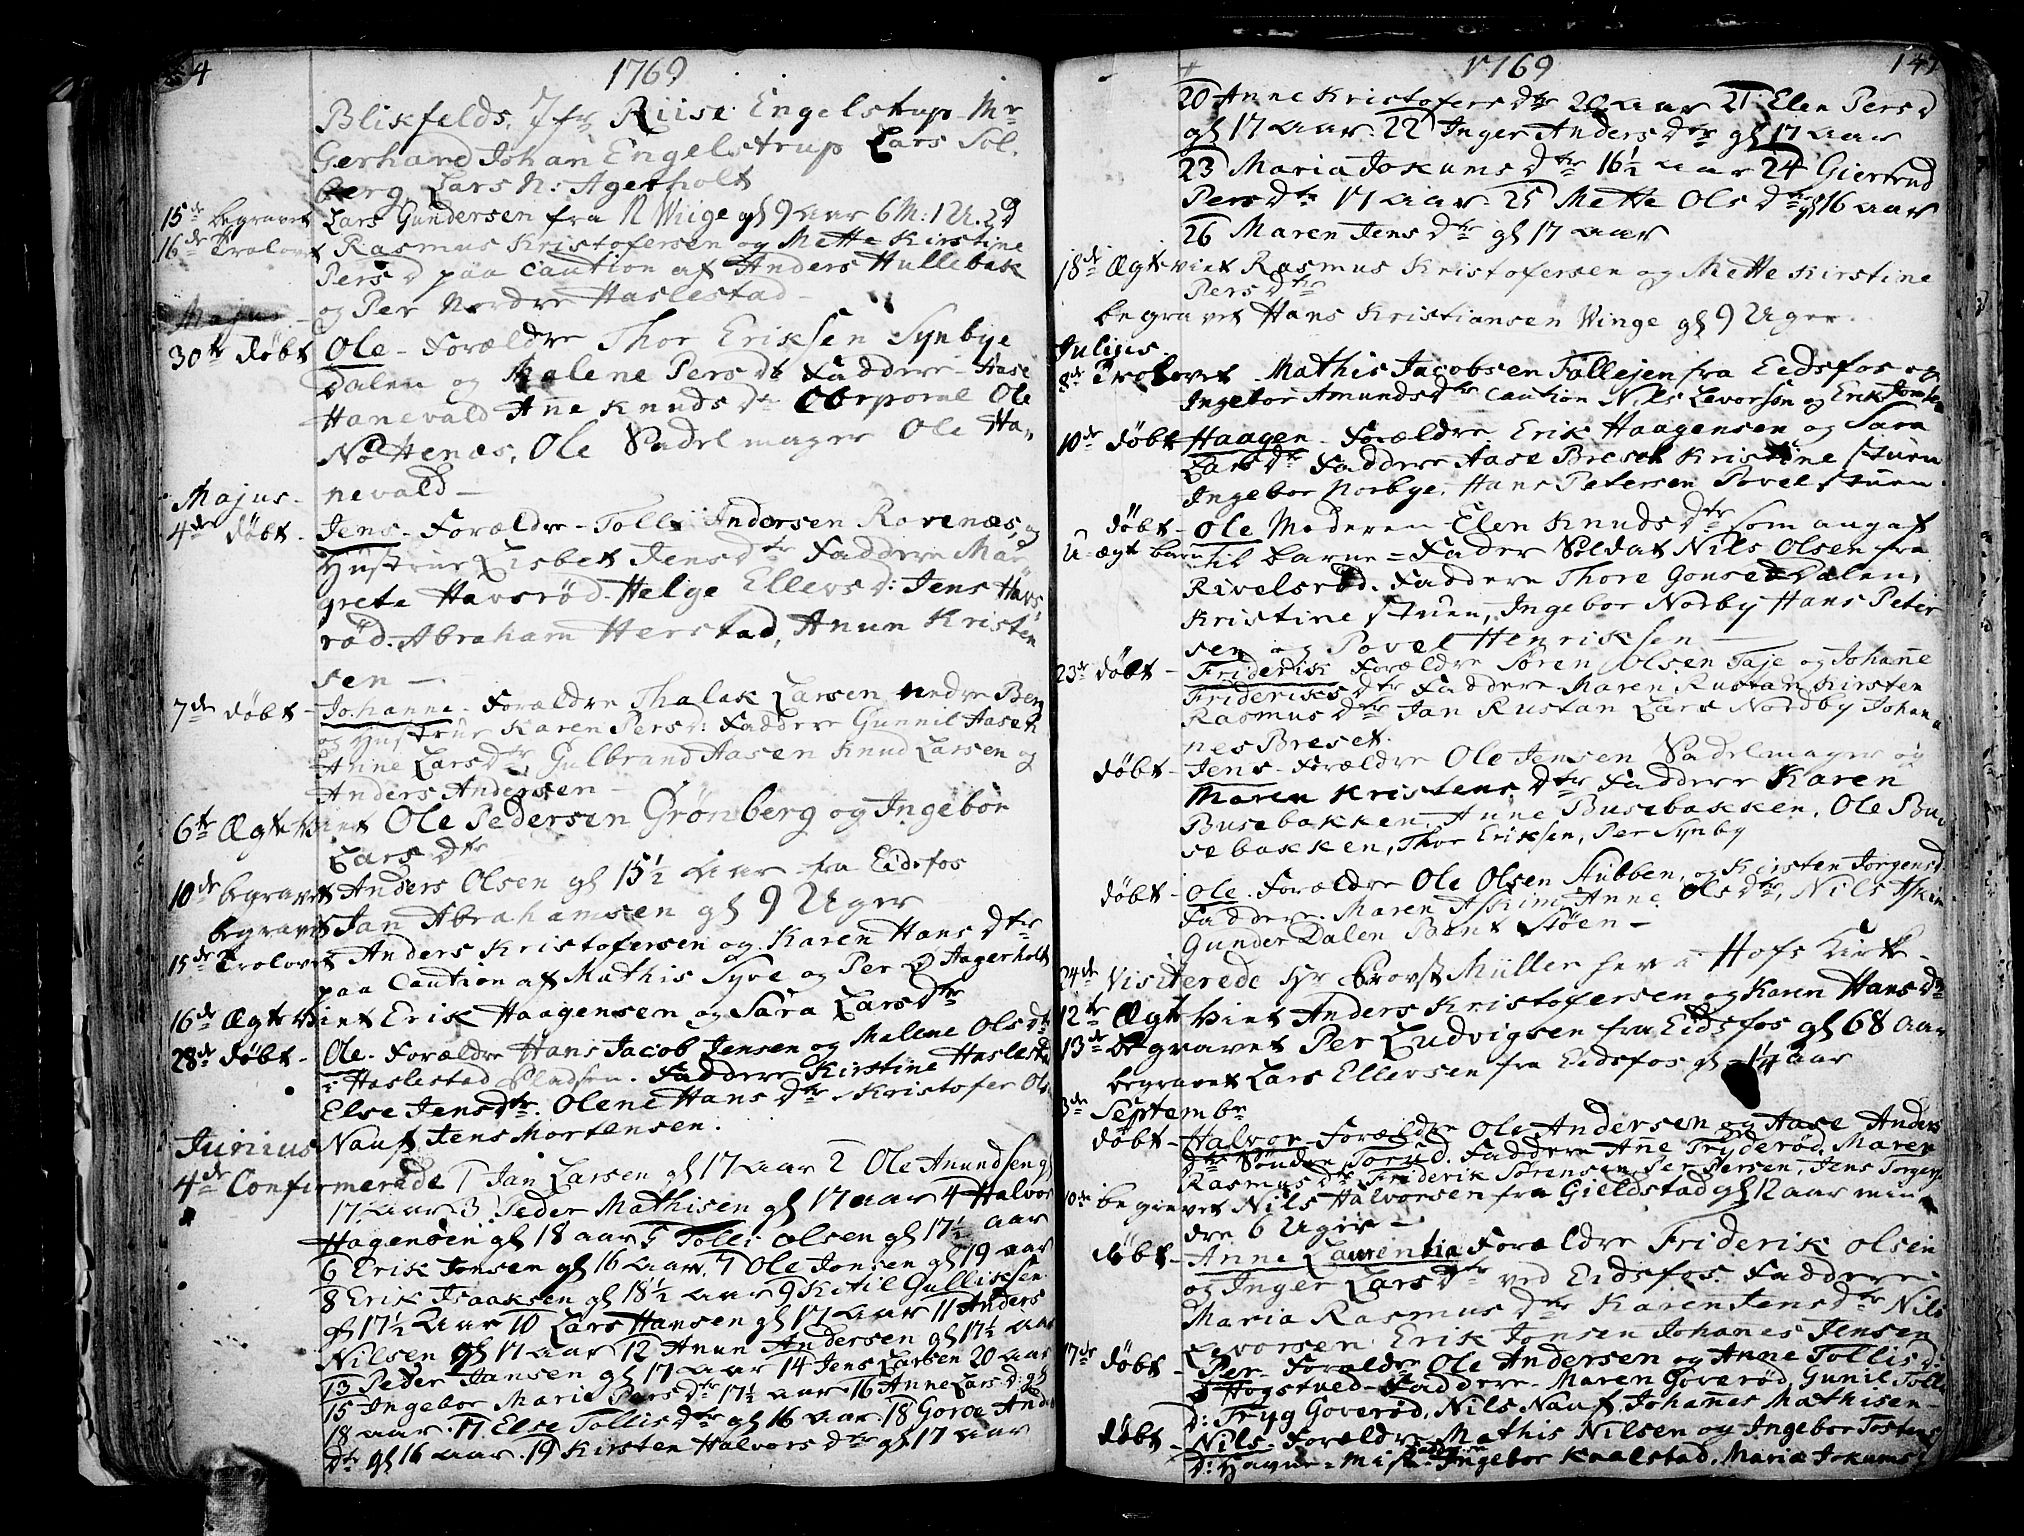 4 1769
Blikfelds, Jfr Riise Engelstrup Mr
Gerhard Johan Engelstrup Lars Sol-
berg Lars N: Agerholt
15de begravet Lars Gundersen fra N Wiige gl 9 aar 6 M: 1 U. 2 D
16de Trolovet Rasmus Kristofersen og Mette Kirstine
Persd paa caution af Anders Hullebak
Majus og Per Nordre Haslestad
30te døbt Ole - Forældre Thor Eriksen Synbye
dalen og Malene Persdt Faddere - Aase
Hanevald Ane Knudsdr Corporal Ole
Nøttenæs, Ole Sadelmager Ole Ha-
Majus - nevald
4de døbt - Jens - Forældre - Tolli Andersen Rørenæs, og
Hustrue Lisbet Jensdtr Faddere Mar-
grete Havsrød Helge Ellevsd: Jens Havs-
rød. Abraham Herstad, Anun Kristen
sen
7de døbt - Johanne - Forældre Thalak Larsen nedre Ben
og Hustrue Karen Persd: Faddere Gunnil Aaset
Anne Larsdtr, Gulbrand Aasen Knud Larsen og
Anders Andersen
6te Ægteviet Ole Pedersen Grønberg og Ingebor
Larsdtr
10de begravet Anders Olsen gl 15½ Aar fra Eidsfos
begravet Jan Abrahamsen gl 9 Uger
15de Trolovet Anders Kristofersen og Karen Hansdtr
paa Caution af Mathis Syve og Per Ø Aagerholt
16de Ægteviet Erik Haagensen og Sara Larsdtr
28de døbt - Ole. Forældre Hans Jacob Jensen og Malene Olsdtr
i Haslestad Pladsen. Faddere Kirstine Haslestad
Else Jensdtr. Olene Hansdtr Kristofer Ols
Junius Nauf Jens Mortensen.
4de Confirmerede 1 Jan Larsen gl 17 aar 2 Ole Anundsen gl
17 aar 3 Peder Mathisen gl 17 aar 4 Halvor
Hagensen gl 18 aar 5 Tolli Olsen gl 17½ aar
6 Erik Jonsen gl 16 aar, 7 Ole Jonsen gl 19 aar
8 Erik Isaaksen gl 18½ aar 9 Ketil Gulliksen
gl 17½ aar 10 Lars Hansen gl 17 aar 11 Anders
Nilsen gl 17 aar 12 Anun Andersen gl 17½ aar
13 Peder Jansen gl 17 aar 14 Jens Larsen 20 aar
15 Ingebor Marie Persdtr 17½ aar 16 Anne Larsd: gl
18 aar. 17 Else Tollisdtr gl 16 aar. 18 Goroe Anders
dtr gl 16 aar. 19 Kirsten Halvorsdtr gl 17 aar
1769 141
20 Anne Kristofersdtr 20 aar 21 Elen Persd
gl 17 aar. 22 Inger Andersdtr gl 17 aar
23 Maria Jokumsdtr 16½ aar 24 Giertrud
Persdtr 17 aar. 25 Mette Olsdtr gl 16 aar
26 Maren Jensdtr gl 17 aar
18de Ægteviet Rasmus Kristofersen og Mette Kirstine
Persdtr
begravet Hans Kristiansen Winge gl 9 Uger.
Julius.
8de Trolovet - Mathis Jacobsen Follejen fra Eidsfos og
Ingebor Amundsdtr caution Nils Levorsen og Erik
10de døbt Haagen - Forældre Erik Haagensen og Sara
Larsdtr Faddere Aase Breset Kristine Stuen
Ingebor Norbye, Hans Petersen Povel Stuen
døbt - Ole Moderen Elen Knudsdtr som angaf
U-ægt barn til barne=Fader Soldat Nils Olsen fra
Rivelsrød. Faddere Thore Gonse Dalen,
Kristine Stuen, Ingebor Nordby Hans Peter
sen og Povel Henriksen
23de døbt - Friderik Forældre Søren Olsen Taje og Johañe
Frideriksdtr Faddere Maren Rustan Kirsten
Rasmusdtr Jan Rustan Lars Nordby Johan
nes Breset.
døbt - Jens - Forældre Ole Jensen Sadelmager og
Maren Kristensdtr Faddere Karen
Busebakken, Anne Busebakken, Ole Bu-
sebakken, Thor Eriksen, Per Synby
døbt - Ole. Forældre Ole Olsen Stubben, og Kirsten Jørgensd
Faddere. Maren Askim Anne Olsdtr, Nils Askim
Gunder Dalen Bent Støen
24de Visiterede Hr Provst Müller her i Hofs Kirk
12te Ægteviet Anders Kristofersen og Karen Hansdtr
13de Begravet Per Ludvigsen fra Eidsfos gl 68 Aar
begravet Lars Ellevsen fra Eidsfos gl ¼ aar
3de Septembr
døbt - Halvor - Forældre Ole Andersen og Aase Anders
dtr Søndre Torud. Faddere Añe Tryderød, Maren
Rasmusdtr Friderik Sørensen Per Persen, Jens Torgers
10de begravet Nils Halvorsen fra Gieldstad gl 12 aar min
dre 6 Uger
døbt - Anne Laurentia Forældre Friderik Olsen
og Inger Larsdtr ved Eidsfos. Faddere
Maria Rasmusdtr Karen Jensdtr Nils
Levorsen Erik Jonsen Johanes Jensen
17de døbt - Per - Forældre Ole Andersen og Anne Tollisd:
Høgstved - Faddere - Maren Goverød, Gunil Tolli
d: Tryg Goverød, Nils Nauf, Johañes Mathisen
døbt - Nils - Forældre Mathis Nilsen og Ingebor Tostens
d: Ingebor Kaalstad, Maria Jokums